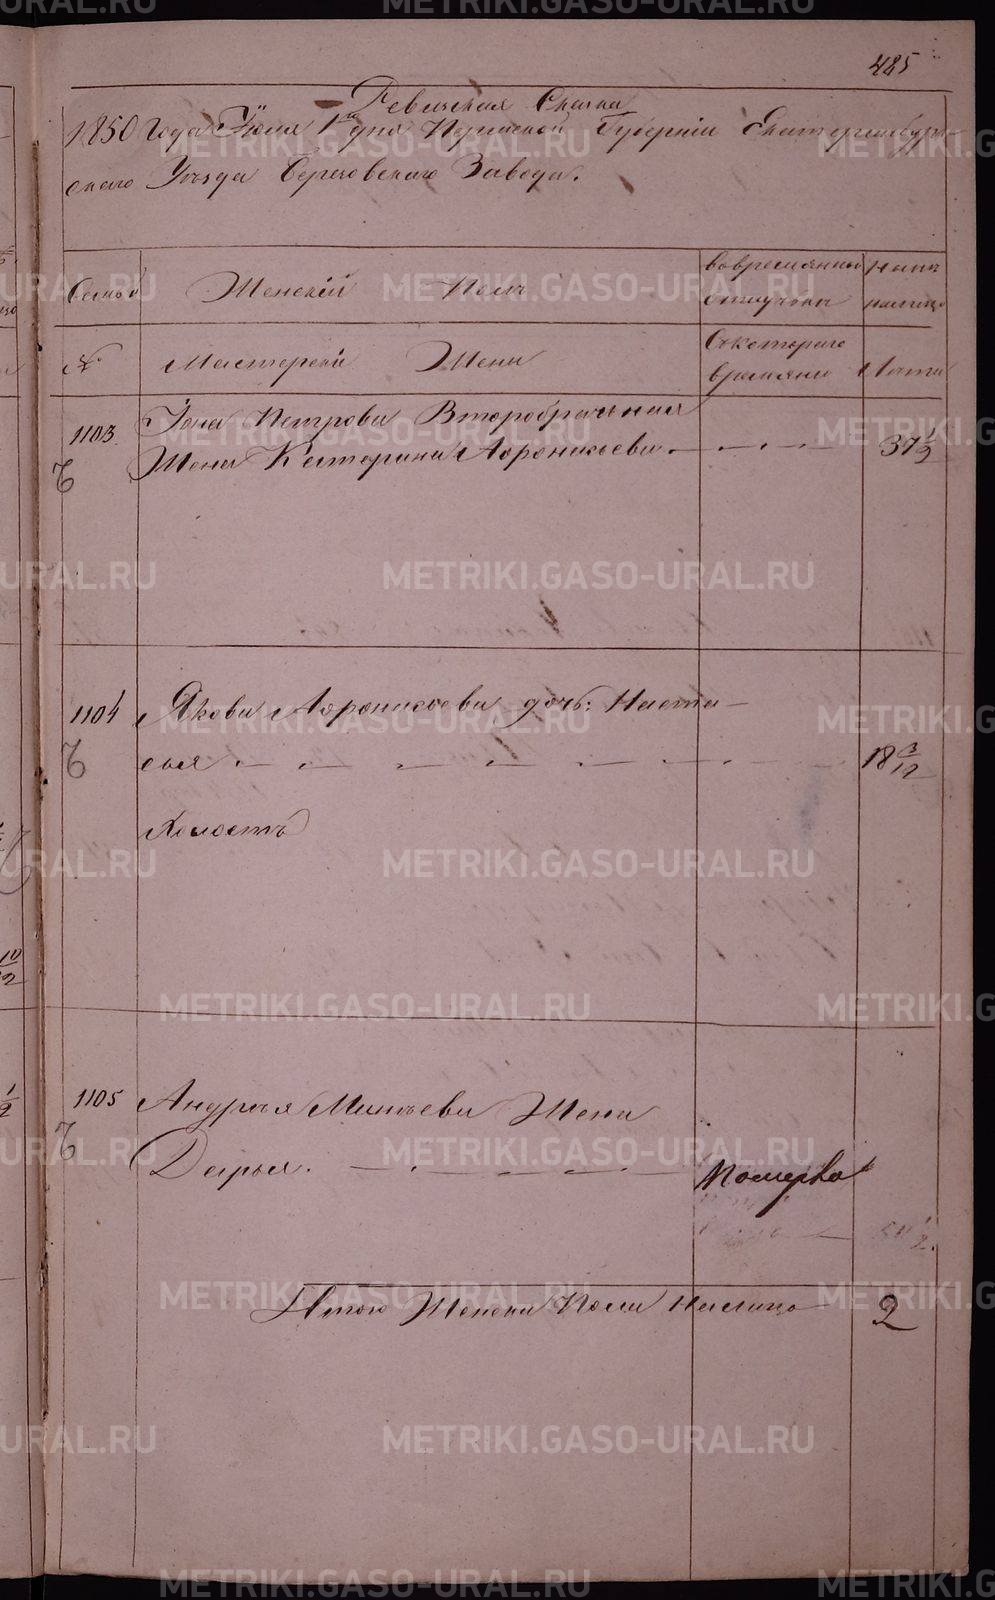 485
Ревизская Сказка
1850 года Июля 1го дня Пермской Губернии Екатеринбург-
скаго Уезда Березовскаго Завода.
Семьи Женской Полъ вовремянной отлучки нынъ налицо
№ Мастерскiй Жены Скотораго времяни Лѣта
1103. Iона Петрова Второбрачьная
Жена Катерина Афоникьева 37 1/2
1104 Якова Афоникьева дочь: Наста-
сья 18 3/12
Холостъ
1105 Андрея Минѣева Жена
Дарья. Померла
Итого Женска Пола Налицо 2
METRIKI.GASO-URAL.RU